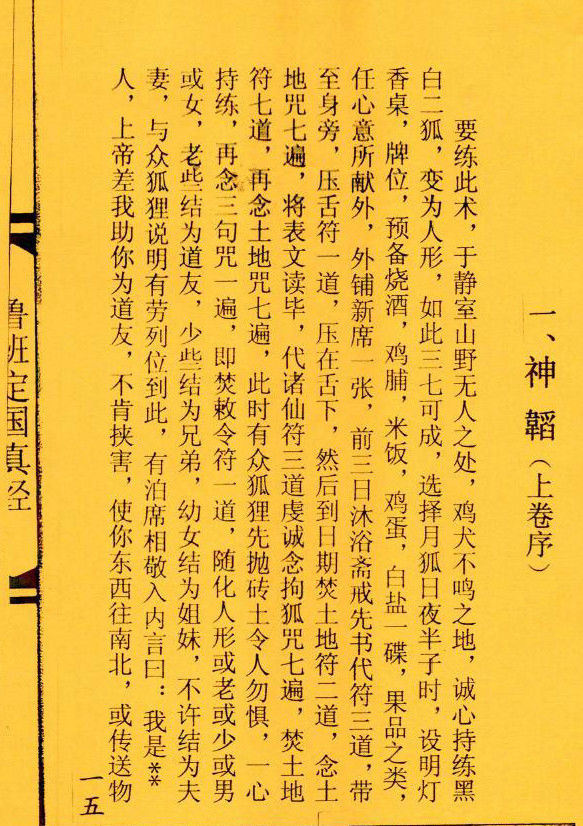 一、神韬（上卷序）
要练此术，于静室山野无人之处，鸡犬不鸣之地，诚心持练黑
白二狐，变为人形，如此三七可成，选择月狐日夜半子时，设明灯
香桌，牌位，预备烧酒，鸡脯，米饭，鸡蛋，白盐一碟，果品之类，
任心意所献外，外铺新席一张，前三日沐浴斋戒先书代符三道，带
至身旁，压舌符一道，压在舌下，然后到日期焚土地符二道，念土
地咒七遍，将表文读毕，代诸仙符三道虔诚念拘狐咒七遍，焚土地
符七道，再念土地咒七遍，此时有众狐狸先抛砖土令人勿惧，一心
持练，再念三句咒一遍，即焚敕令符一道，随化人形或老或少或男
或女，老些结为道友，少些结为兄弟，幼女结为姐妹，不许结为夫
妻，与众狐狸说明有劳列位到此，有泊席相敬入内言曰：我是**
人，上帝差我助你为道友，不肯挟害，使你东西往南北，或传送物
鲁班定国真经
一五